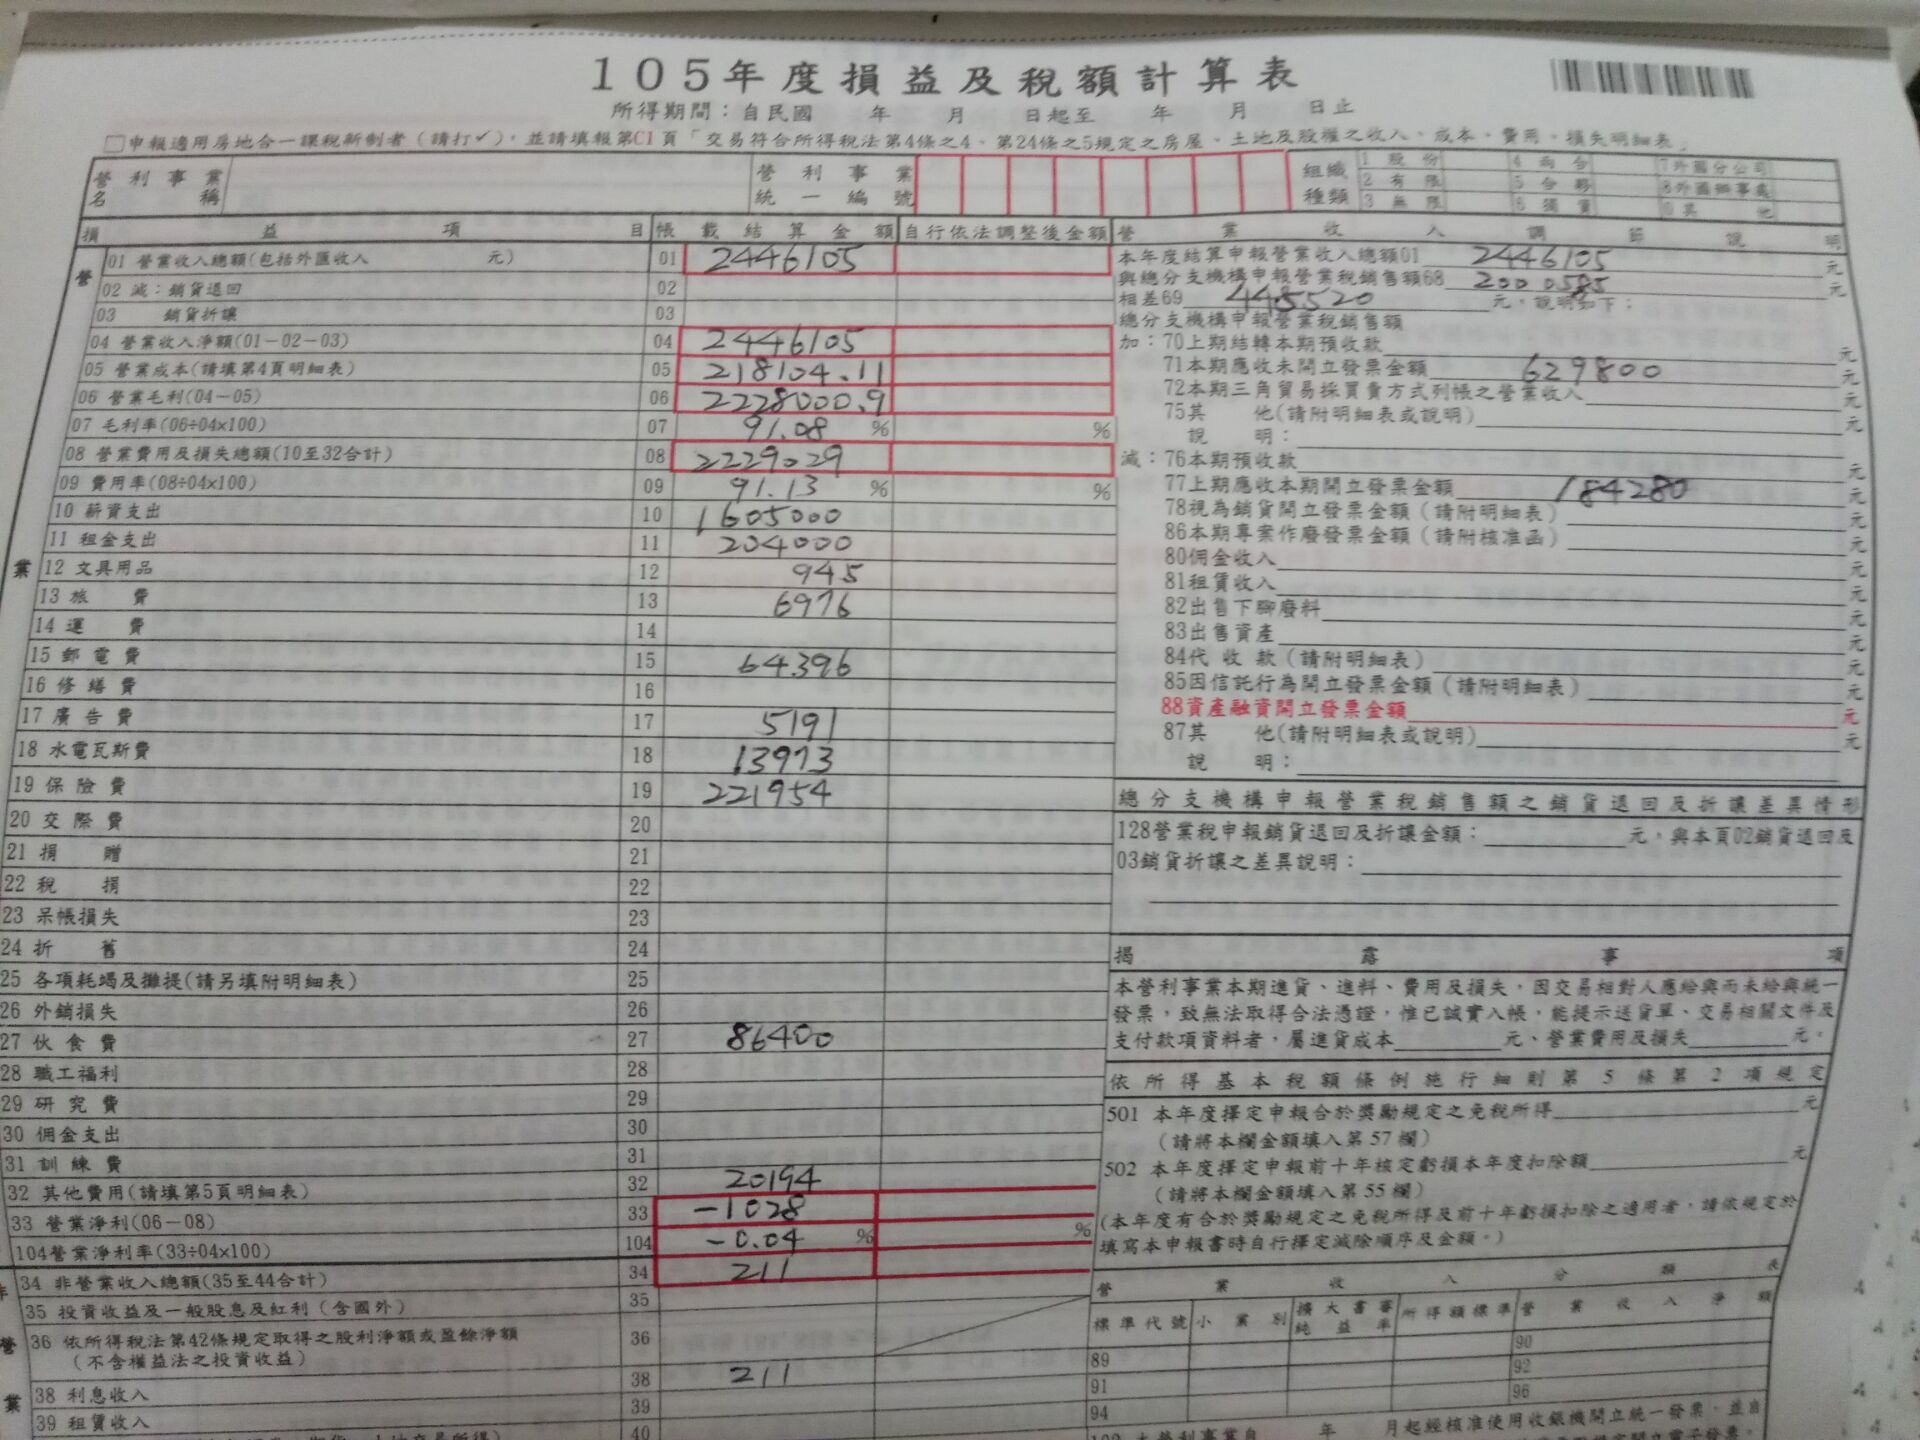 105年度損益及稅額計算表
所得期間：自民國 年 月 日起至 年 月 日止
□申報適用房地合一課稅新制者（請打✓），並請填報第C1頁「交易符合所得稅法第4條之4、第24條之5規定之房屋、土地及股權之收入、成本、費用、損失明細表」
營利事業名稱
營利事業統一編號
組織種類
1 股份 4 兩合 7外國分公司
2 有限 5 合夥 8外國辦事處
3 無限 6 獨資 9 其他
損益項目 帳載結算金額 自行依法調整後金額
營業
01 營業收入總額(包括外匯收入 元) 01 2446105
02 減：銷貨退回 02
03 銷貨折讓 03
04 營業收入淨額(01-02-03) 04 2446105
05 營業成本(請填第4頁明細表) 05 218104.11
06 營業毛利(04-05) 06 2228000.9
07 毛利率(06÷04x100) 07 91.08 % %
08 營業費用及損失總額(10至32合計) 08 2229029
09 費用率(08÷04x100) 09 91.13 % %
10 薪資支出 10 1605000
11 租金支出 11 204000
12 文具用品 12 945
13 旅費 13 6976
14 運費 14
15 郵電費 15 64396
16 修繕費 16
17 廣告費 17 5191
18 水電瓦斯費 18 13973
19 保險費 19 221954
20 交際費 20
21 捐贈 21
22 稅捐 22
23 呆帳損失 23
24 折舊 24
25 各項耗竭及攤提(請另填附明細表) 25
26 外銷損失 26
27 伙食費 27 86400
28 職工福利 28
29 研究費 29
30 佣金支出 30
31 訓練費 31
32 其他費用(請填第5頁明細表) 32 20194
33 營業淨利(06-08) 33 -1028
104營業淨利率(33÷04x100) 104 -0.04 % %
非營業
34 非營業收入總額(35至44合計) 34 211
35 投資收益及一般股息及紅利（含國外） 35
36 依所得稅法第42條規定取得之股利淨額或盈餘淨額 36
（不含權益法之投資收益）
38 利息收入 38 211
39 租賃收入 39
40
營業收入調節說明
本年度結算申報營業收入總額01 2446105 元
與總分支機構申報營業稅銷售額68 2000585 元
相差69 445520 元，說明如下：
總分支機構申報營業稅銷售額
加：70上期結轉本期預收款 元
71本期應收未開立發票金額 629800 元
72本期三角貿易採買賣方式列帳之營業收入 元
75其他(請附明細表或說明) 元
說明：
減：76本期預收款 元
77上期應收本期開立發票金額 184280 元
78視為銷貨開立發票金額（請附明細表） 元
86本期專案作廢發票金額（請附核准函） 元
80佣金收入 元
81租賃收入 元
82出售下腳廢料 元
83出售資產 元
84代收款（請附明細表） 元
85因信託行為開立發票金額（請附明細表） 元
88資產融資開立發票金額 元
87其他(請附明細表或說明) 元
說明：
總分支機構申報營業稅銷售額之銷貨退回及折讓差異情形
128營業稅申報銷貨退回及折讓金額： 元，與本頁02銷貨退回及
03銷貨折讓之差異說明：
揭露事項
本營利事業本期進貨、進料、費用及損失，因交易相對人應給與而未給與統一
發票，致無法取得合法憑證，惟已誠實入帳，能提示送貨單、交易相關文件及
支付款項資料者，屬進貨成本 元、營業費用及損失 元。
依所得基本稅額條例施行細則第5條第2項規定
501 本年度擇定申報合於獎勵規定之免稅所得 元
（請將本欄金額填入第57欄）
502 本年度擇定申報前十年核定虧損本年度扣除額 元
（請將本欄金額填入第55欄）
(本年度有合於獎勵規定之免稅所得及前十年虧損扣除之適用者，請依規定於
填寫本申報書時自行擇定減除順序及金額。)
營業收入分類表
標準代號 小業別 擴大書審純益率 所得額標準 營業收入淨額
89 90
91 92
94 96